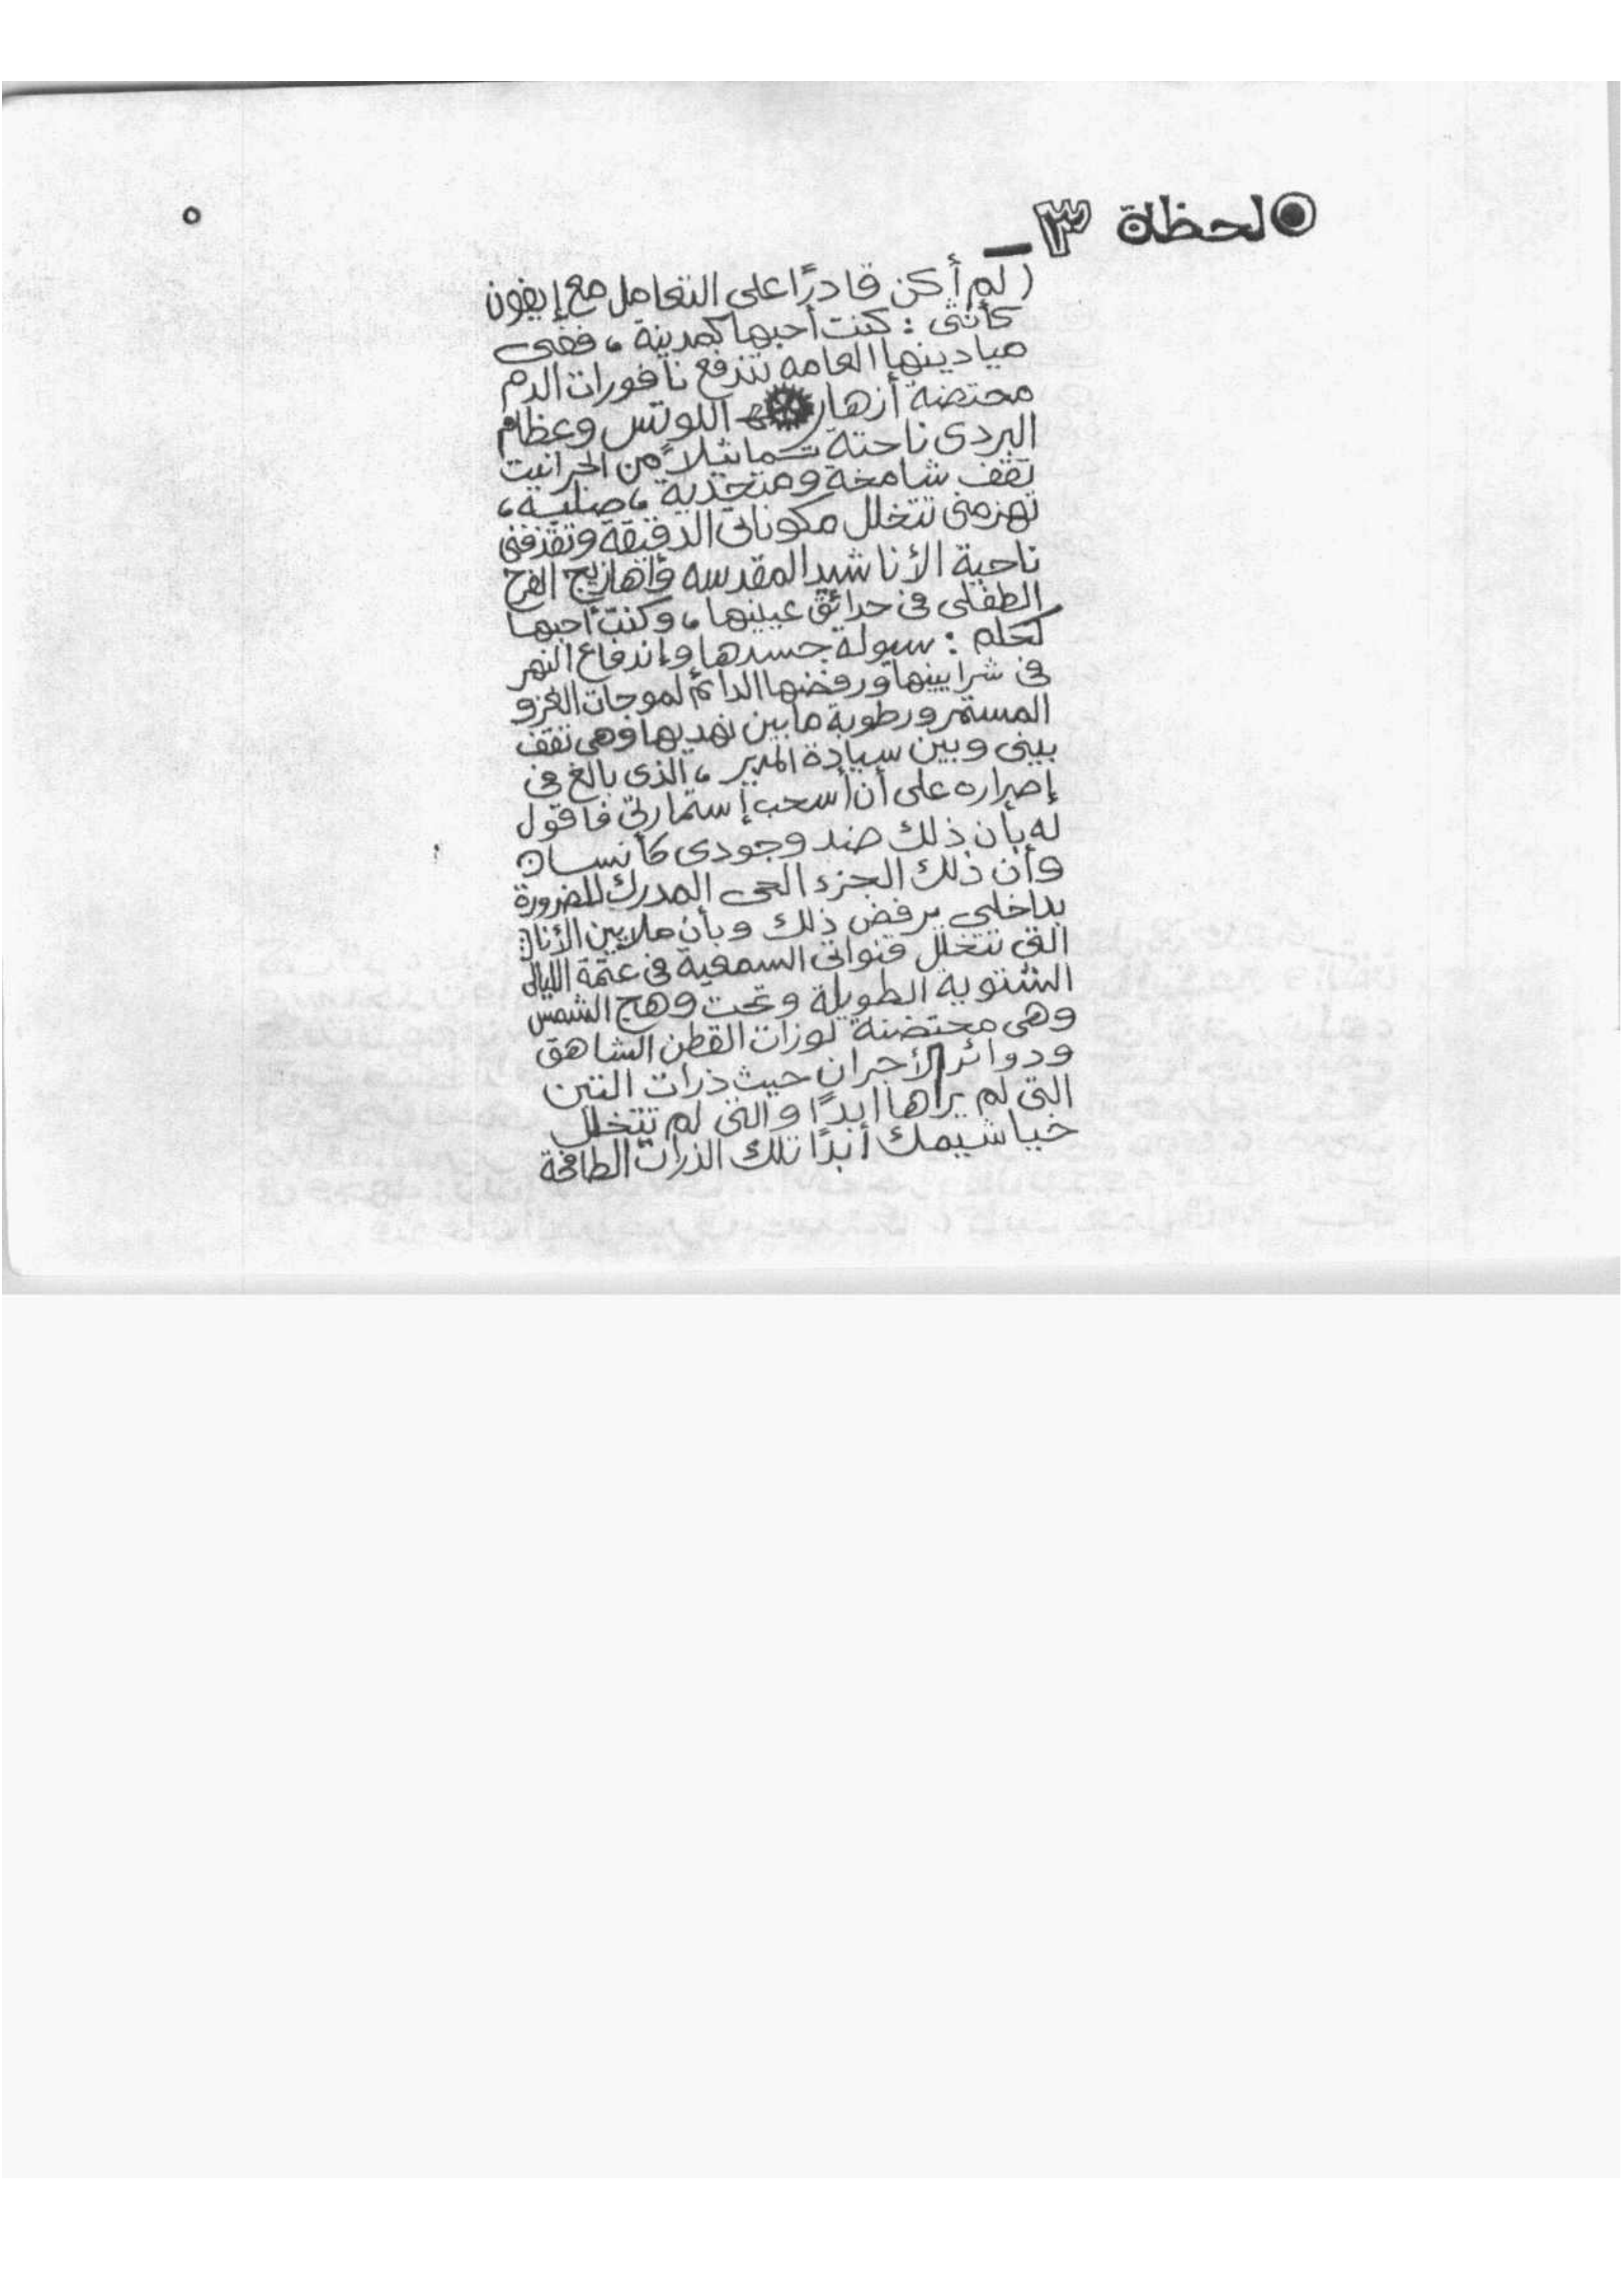 لحظة ٣ـ
٥
( لم أكن قادرًا على التعامل مع إيفون
كأنثى : كنت أحبها كمدينة ، ففى
ميادينها العامه تندفع نافورات الدم
محتضنة أزهار اللوتس وعظام
البردى ناحتة تماثيلاً من الجرانيت
تقف شامخة ومتحدية ، صلبة ،
تهزمنى تتخلل مكوناتى الدقيقة وتقذفنى
ناحية الأناشيد المقدسه وأهازيج الفرح
الطفلى فى حدائق عينيها ، وكنت أحبها
كحلم : سيولة جسدها وإندفاع النهر
فى شرايينها ورفضها الدائم لموجات الغزو
المستمر ورطوبة ما بين نهديها وهى تقف
بينى وبين سيادة المدير ، الذى بالغ فى
إصراره على أن أسحب إستمارتى فأقول
له بأن ذلك ضد وجودى كأنسان
وأن ذلك الجزء الحى المدرك للضرورة
بداخلى يرفض ذلك وبأن ملايين الأنات
التى تتخلل قنواتى السمعية فى عتمة الليالى
الشتوية الطويلة وتحت وهج الشمس
وهى محتضنة لوزات القطن الشاهق
ودوائر الأجران حيث ذرات التبن
التى لم يراها أبدًا والتى لم تتخلل
خياشيمك أبدًا تلك الذرات الطافحة